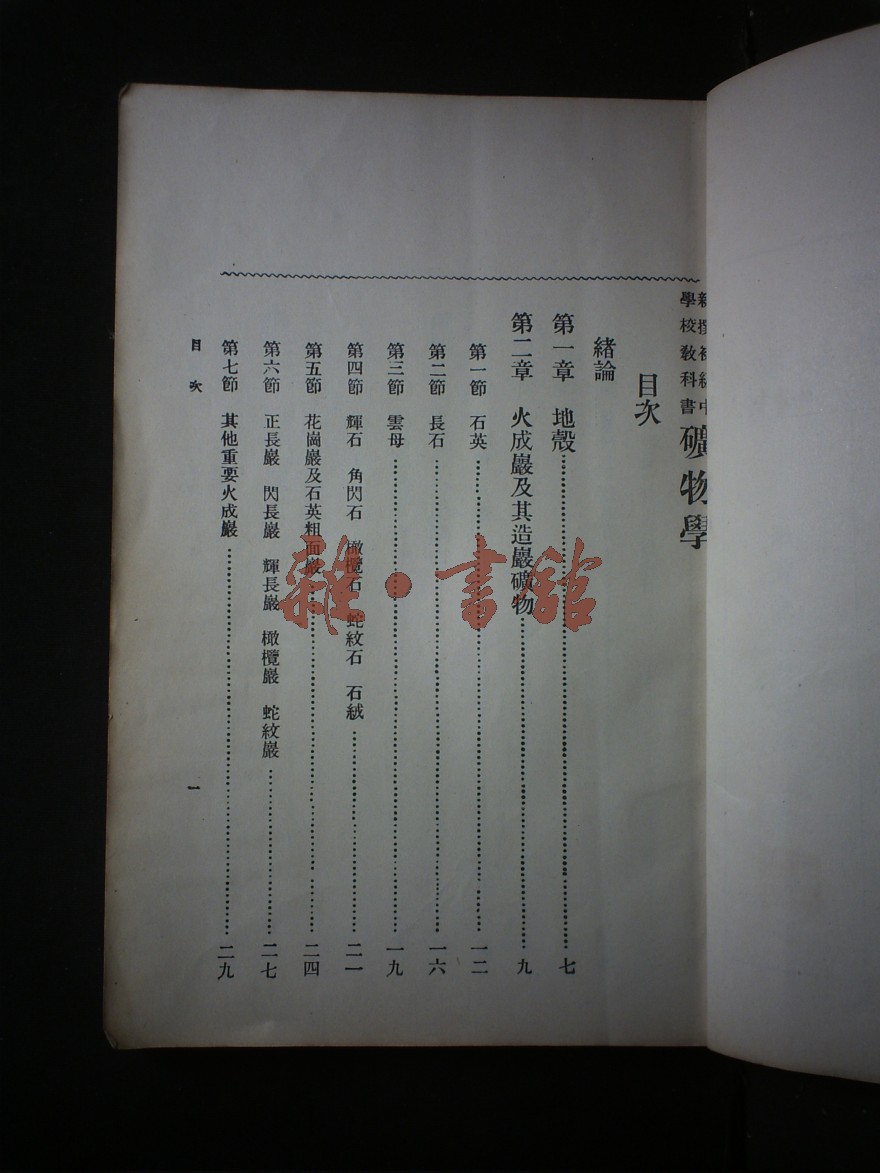 新撰初級中
學校教科書
礦物學
目次
緒論
第一章 地殼……七
第二章 火成巖及其造巖礦物……九
第一節 石英……一二
第二節 長石……一六
第三節 雲母……一九
第四節 輝石 角閃石 橄欖石 蛇紋石 石絨……二一
第五節 花崗巖及石英粗面巖……二四
第六節 正長巖 閃長巖 輝長巖 橄欖巖 蛇紋巖……二七
第七節 其他重要火成巖……二九
目次
一
雜·書館